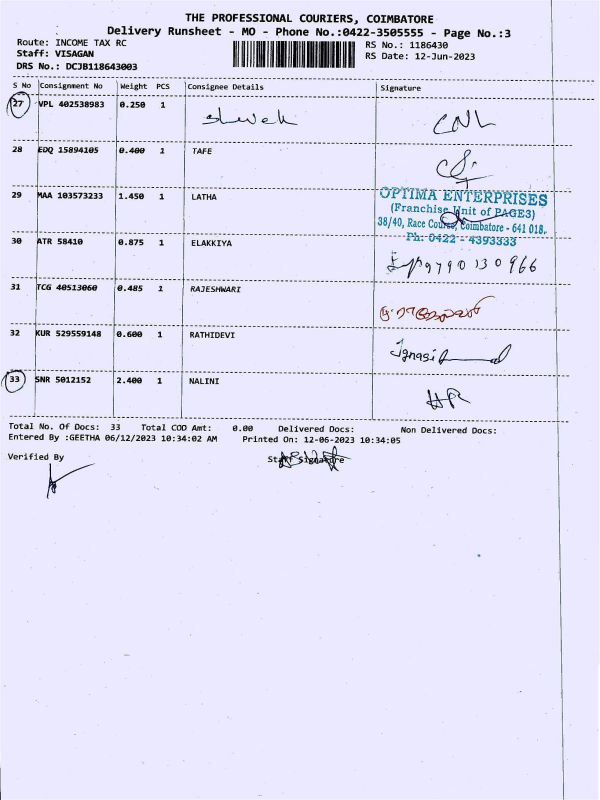 THE PROFESSIONAL COURIERS, COIMBATORE
Delivery Runsheet - MO - Phone No.:0422-3505555 - Page No.:3
Route: INCOME TAX RC
RS No.: 1186430
Staff: VISAGAN
RS Date: 12-Jun-2023
DRS No.: DCJB118643003
S No Consignment No Weight PCS Consignee Details Signature
27 VPL 402538983 0.250 1
28 EDQ 15894105 0.400 1 TAFE
29 MAA 103573233 1.450 1 LATHA
OPTIMA ENTERPRISES
(Franchise Unit of PAGE3)
38/40, Race Course, Coimbatore - 641 018.
Ph: 0422 - 4393333
30 ATR 58410 0.875 1 ELAKKIYA
9790130966
31 TCG 40513060 0.485 1 RAJESHWARI
32 KUR 529559148 0.600 1 RATHIDEVI
33 SNR 5012152 2.400 1 NALINI
Total No. Of Docs: 33 Total COD Amt: 0.00 Delivered Docs: Non Delivered Docs:
Entered By :GEETHA 06/12/2023 10:34:02 AM Printed On: 12-06-2023 10:34:05
Verified By Staff Signature